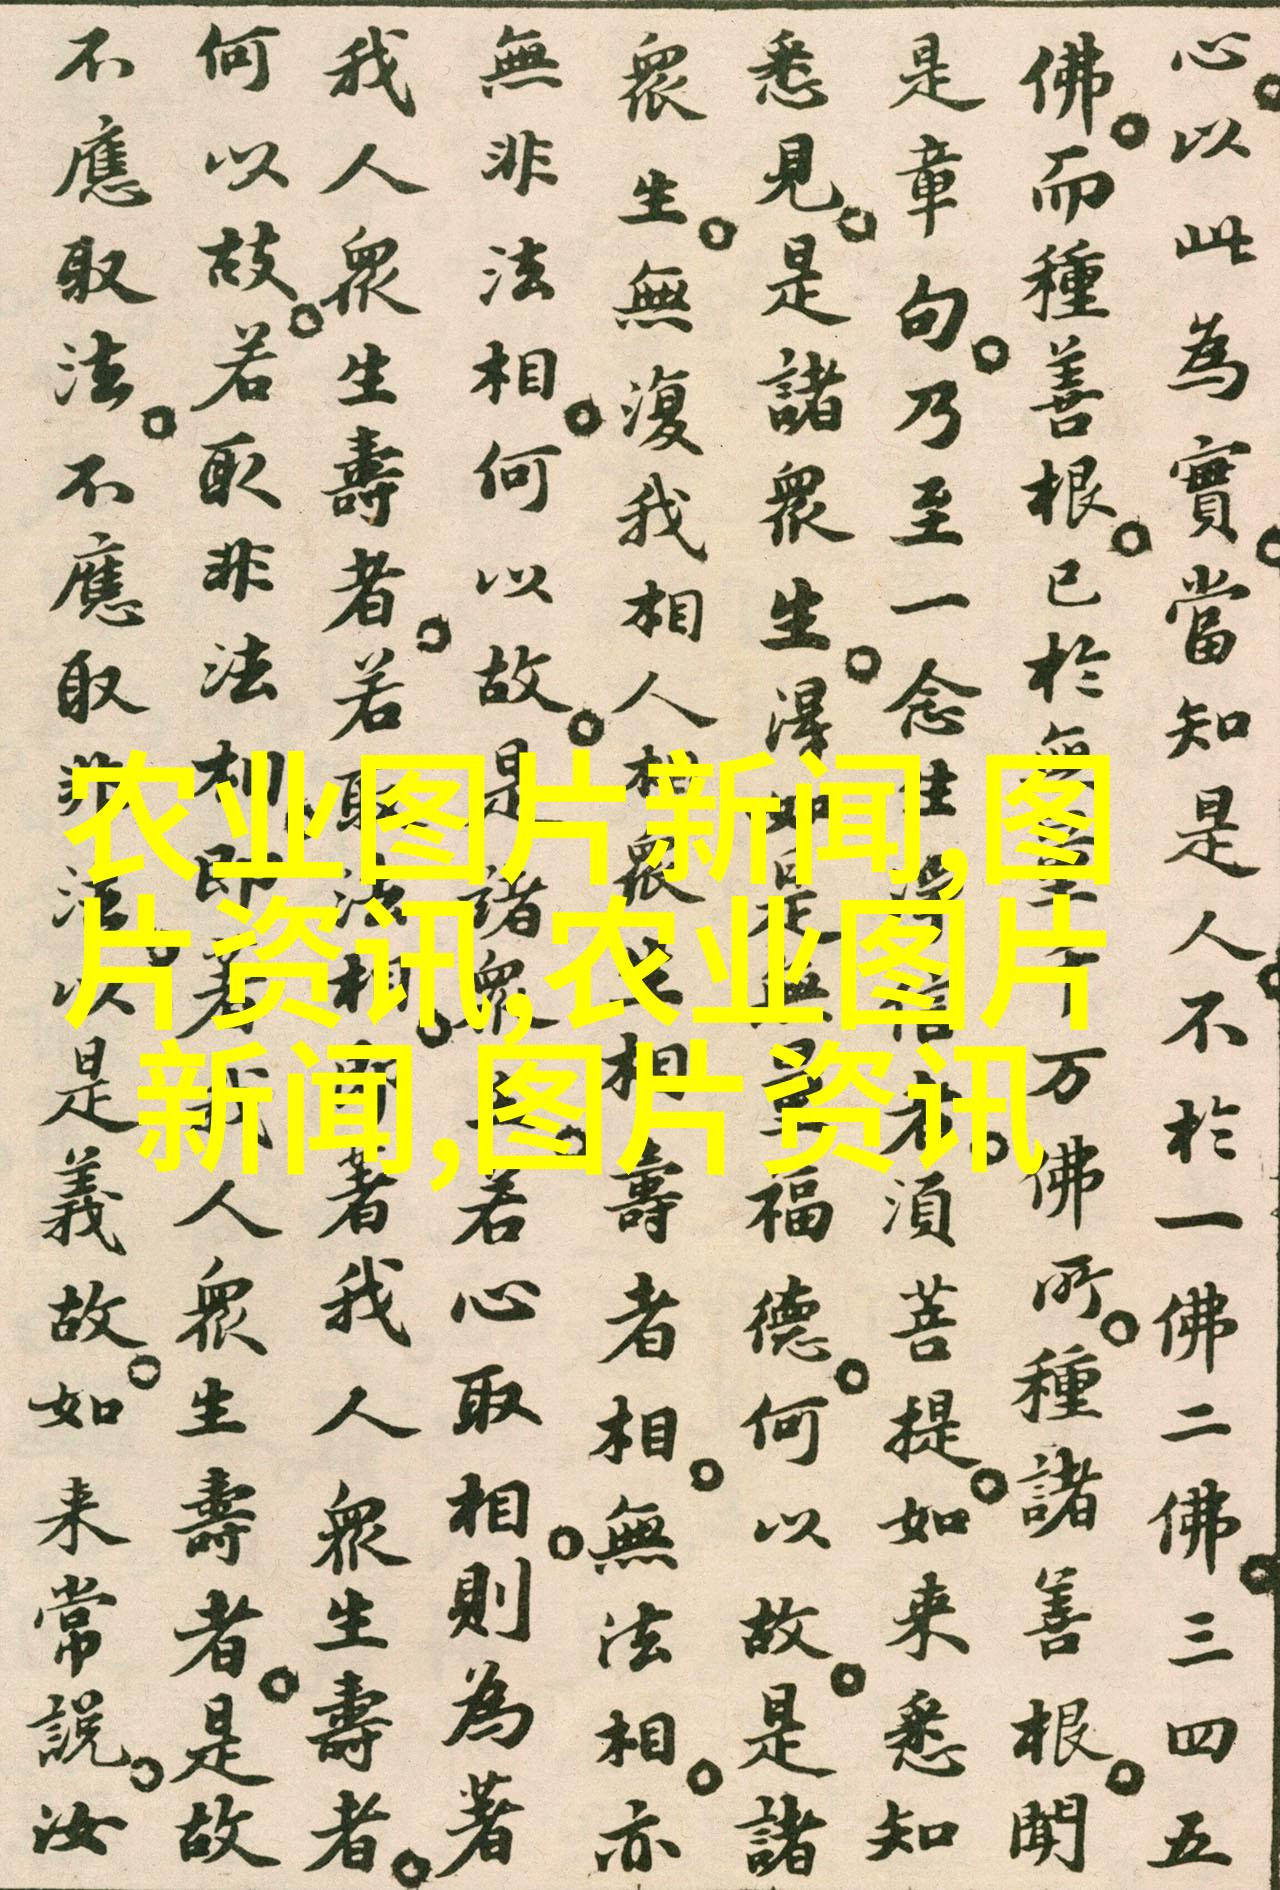 心以此為實當知是人不於一佛二佛三四五
佛而種善根已於無量千万佛所種諸善根聞
是章句乃至一念生淨信者須菩提如来悉知
悉見是諸衆生得如是無量福德何以故是諸
衆生無復我相人相衆生相壽者相無法相亦
無非法相何以故是諸衆生若心取相則為著
我人衆生壽者若取法相即著我人衆生壽者
何以故若取非法相即著我人衆生壽者是故
不應取法不應取非法以是義故如来常説汝
农业图片新闻,图
片资讯,农业图片
新闻,图片资讯